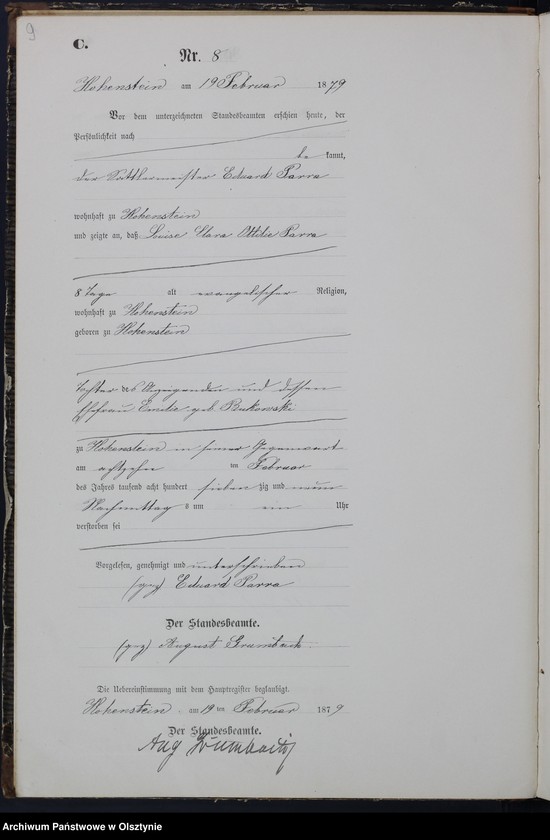 9
C.
Nr. 8
Hohenstein am 19 Februar 1879
Vor dem unterzeichneten Standesbeamten erschien heute, der
Persönlichkeit nach
be kannt,
der Sattlermeister Eduard Parra
wohnhaft zu Hohenstein
und zeigte an, daß Luise Clara Ottilie Parra
8 Tage alt evangelischer Religion,
wohnhaft zu Hohenstein
geboren zu Hohenstein
Tochter des Anzeigenden und dessen
Ehefrau Emilie geb. Bukowski
zu Hohenstein in seiner Gegenwart
am achtzehn ten Februar
des Jahres tausend acht hundert sieben zig und neun
Nachmittag s um ein Uhr
verstorben sei
Vorgelesen, genehmigt und unterschrieben
(gez) Eduard Parra
Der Standesbeamte.
(gez) August Grumbach
Die Uebereinstimmung mit dem Hauptregister beglaubigt.
Hohenstein am 19 ten Februar 1879
Der Standesbeamte.
Aug
Archiwum Państwowe w Olsztynie